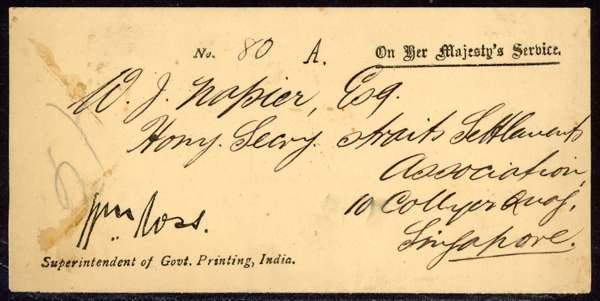 No. 80 A. On Her Majesty's Service.
W. J. Napier, Esq.
Hony. Secry. Straits Settlements
Association,
10 Collyer Quay,
Singapore.
Wm Ross.
Superintendent of Govt. Printing, India.